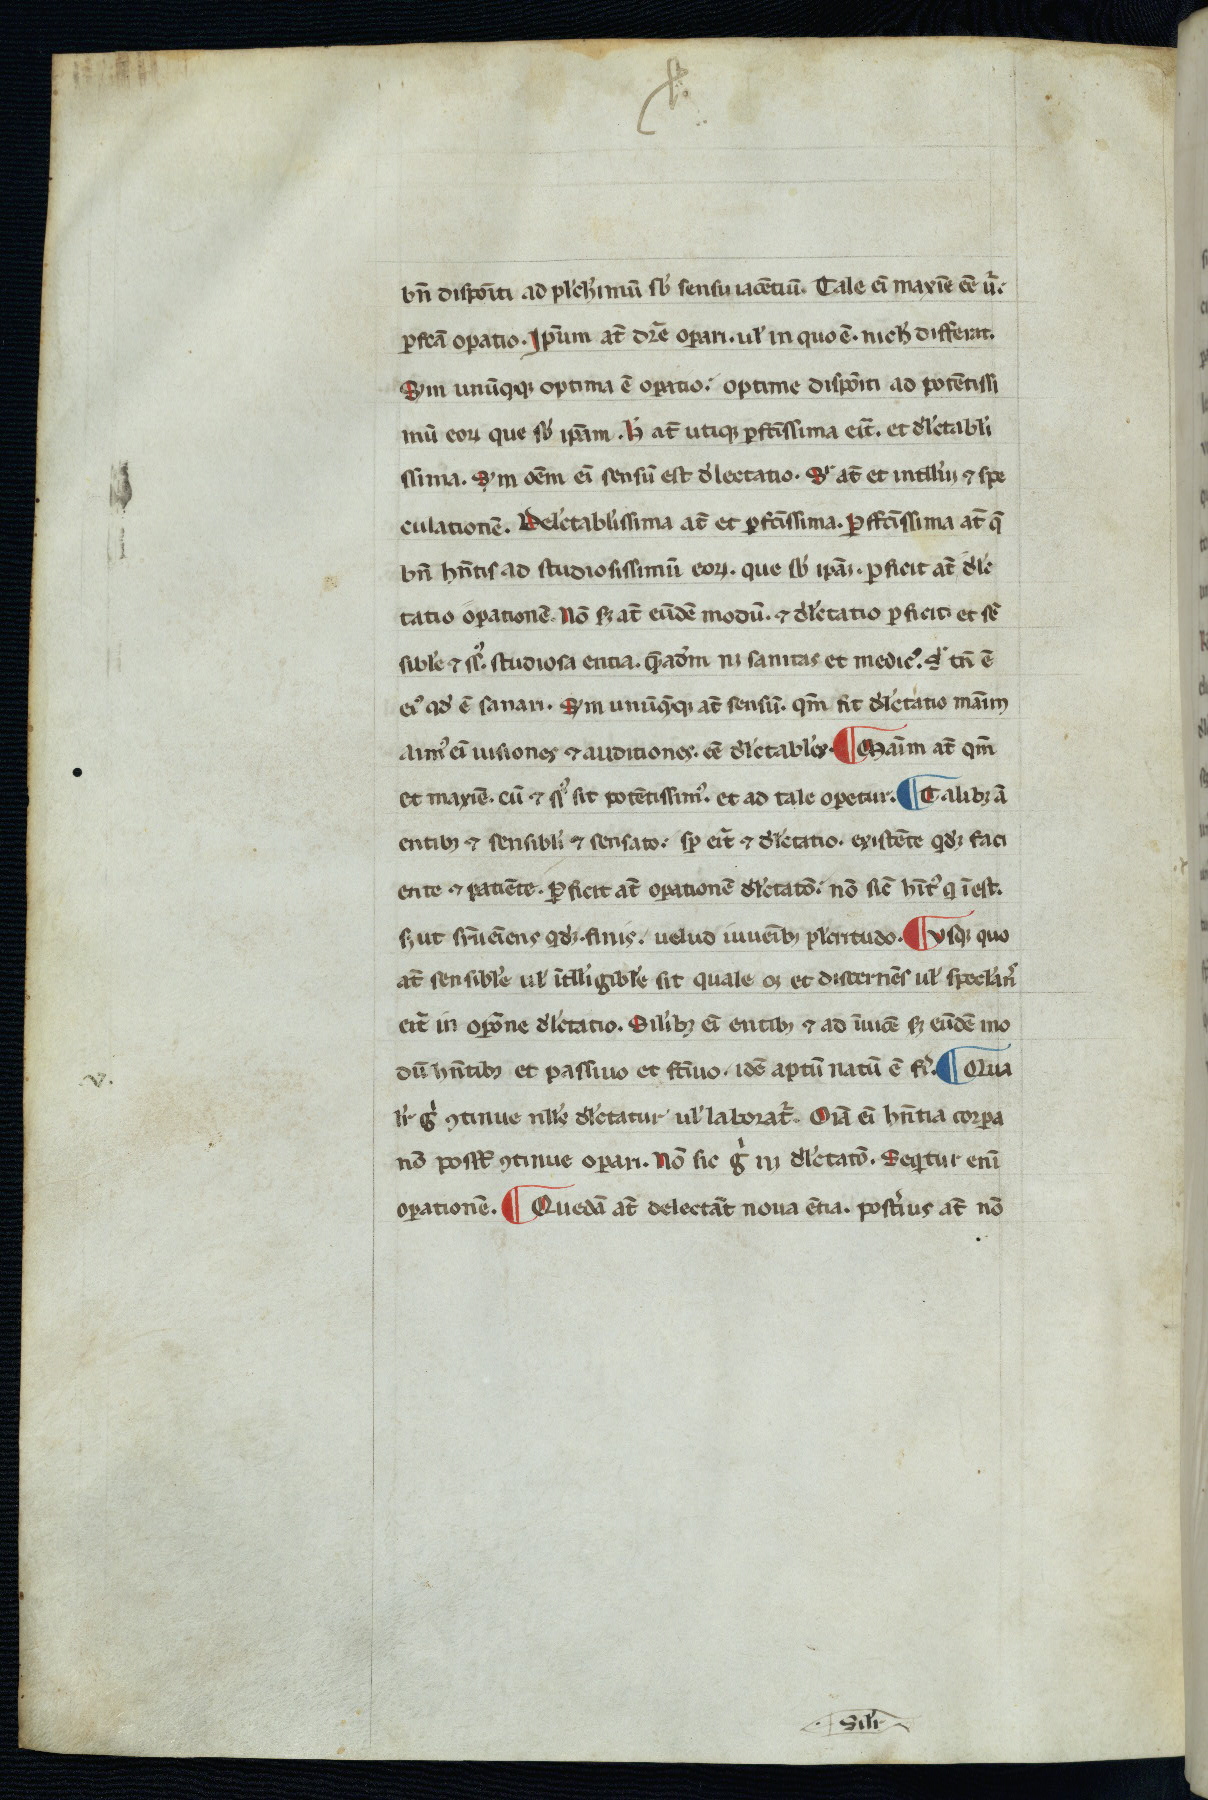 x.
bn̄ dispōiti ad plch̓imū sb̓ sensu iacētiū. Tale ei maxīe eē ur̄.
ꝑfcā oꝑatio. Ipsum at̄ dr̄e oꝑari. ul̓ in quo ē. nich̓ differat.
Sm̄ unūqꝙ optima ē oꝑatio. optime dispōiti ad potētissi
mū eoꝝ que sb̓ ipam. h̓ at̄ utiqꝫ ꝑfctissima erit̄. et dl̓ctabli
ssima. Sm̄ oēm ei sensū est dl̓ectatio. Sr̓ at̄ et intll̓m ⁊ spe
culationē. Delc̓tabl̓issima at̄ et ꝑfctīssima. Ꝑfctīssima at̄ q̄
bn̄ hn̄tis ad studiosissimū eoꝝ. que sb̓ ipāꝫ. ꝑficit at̄ dl̓c
tatio oꝑationē. Nō ẜꝫ at̄ eūdē modū. ⁊ dl̓ctatio ꝑficit et sē
sibl̓e ⁊ ss̓. studiosa entia. q̄adm̄ nꝫ sanitas et medic̓. sr̓ tn̄ ē
ei̓ qd̓ ē sanari. Sm̄ unūqꝙ at̄ sensū. qm̄ fit dl̓ctatio mā̄im
aim̓ ei uisiones ⁊ auditiones. eē dl̓ctabl̓es. ¶ Mā̄im at̄ qm̄
et maxīe. cū ⁊ ss̓ sit potētissim̓. et ad tale oꝑetur. ¶ Talibꝫ ā
entibꝫ ⁊ sensibli ⁊ sensato. sꝑ erit̄ ⁊ dl̓ctatio. existēte qd̓ꝫ faci
ente ⁊ patiēte. Ꝑficit at̄ oꝑationē dl̓ctatō. nō sic̄ hīt̓ q īest.
ẜꝫ ut sr̄ueiēns qd̓ꝫ finis. uelud iuuenibꝫ plcritudo. ¶ Usqꝫ quo
at̄ sensibl̓e ul̓ ītll̓igibl̓e sit quale oꝫ et discernēs ul̓ speclan̓s
erit̄ in oꝑōne dl̓ctatio. Silibꝫ ei entibꝫ ⁊ ad īuicē ẜꝫ eūdē mo
dū hn̄tibꝫ et passiuo et fctīuo. idē aptū natū ē fi̓. ¶ Qua
lr̓ g̓ ꝯtinue null̓e dl̓ctatur ul̓ laborat̄. Oīa ei hn̄tia corꝑa
nō poss̄t ꝯtinue oꝑari. Nō sic g̓ nꝫ dl̓ctatō. Seqtur enī
oꝑationē. ¶ Quedā at̄ delectāt noua ētia. post̓ius at̄ nō
v.
Silr̓